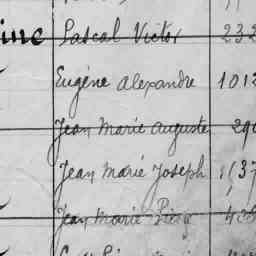 ine Pascal Victor 232
Eugène Alexandre 1012
Jean Marie Auguste 290
Jean Marie Joseph 1137
Jean Marie